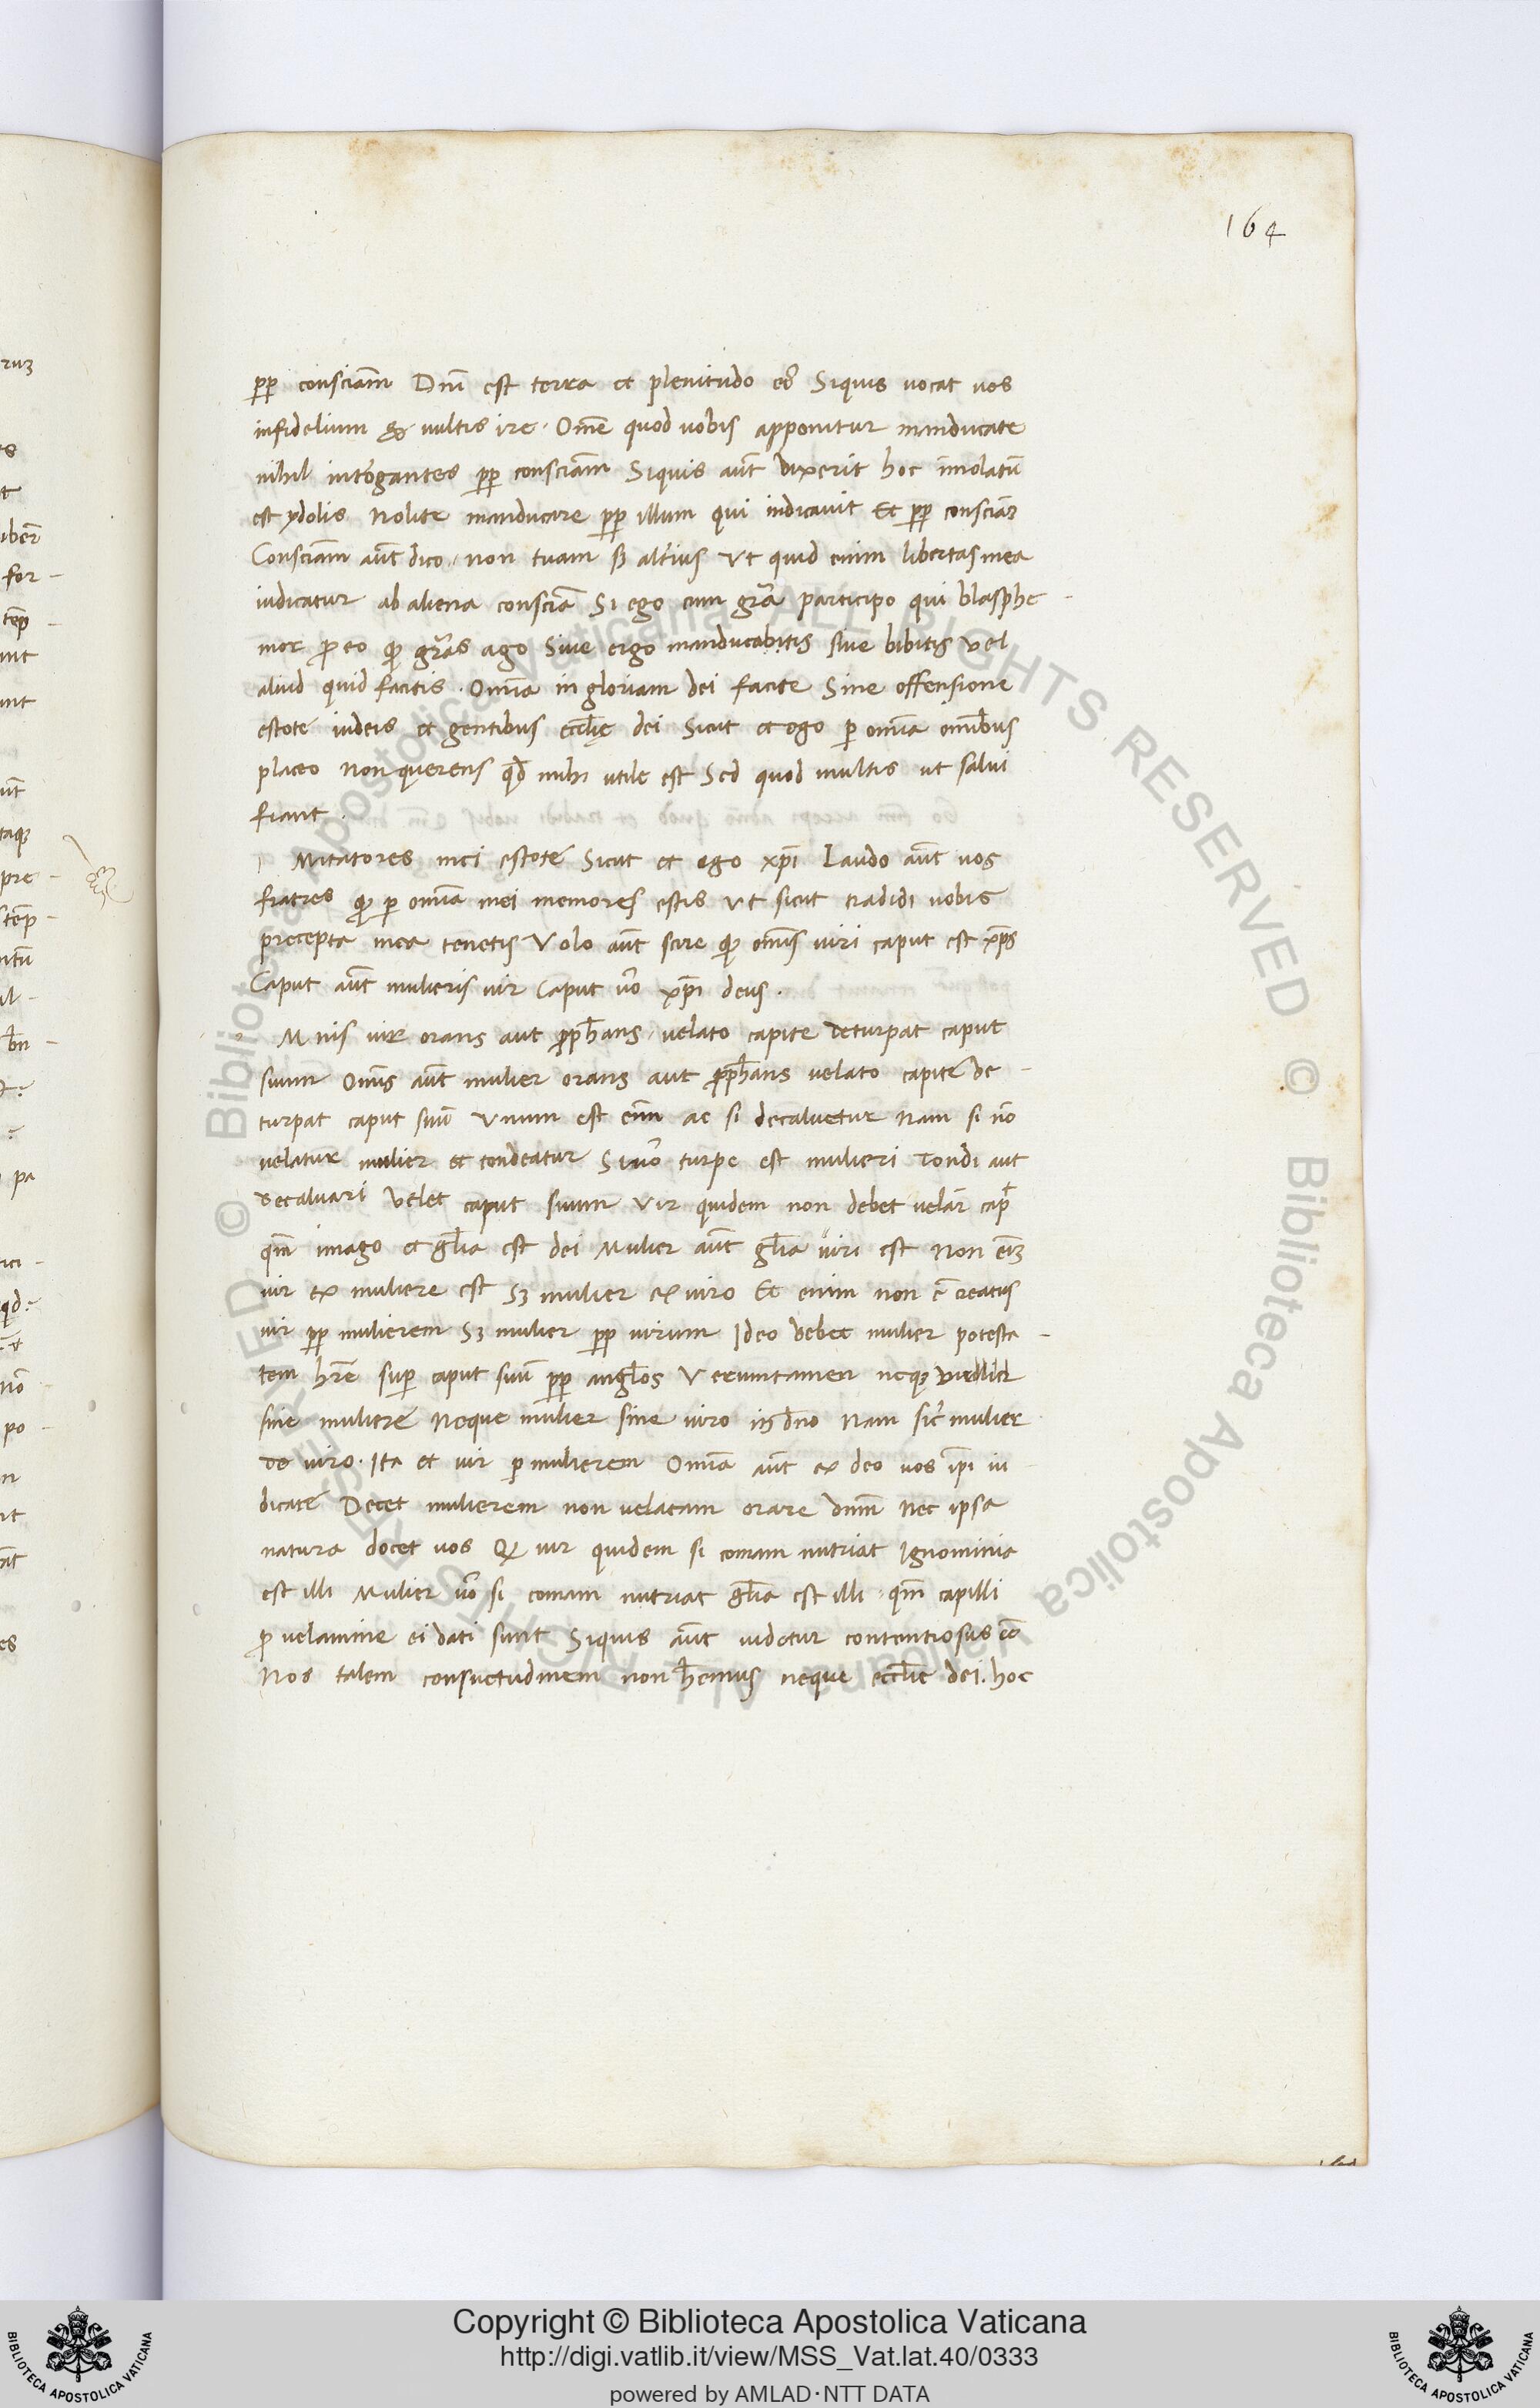 164
pp consciam̄ Dnī est terra et plenitudo eoꝝ Siquis uocat uos
infidelium & uultis ire · Om̄e quod uobis apponitur manducate
nihil intr̄ogantes pp consciam̄ Siquis aut̄ dixerit hoc īmolatū
est ydolis Nolite manducare pp illum qui indicauit Et pp consciaꝫ
Consciam̄ aut̄ dico · non tuam ꞩ alt̄ius Vt quid enim libertas mea
iudicatur ab aliena consciā Si ego cum gr̄a participo qui blasphe-
mor ꝓ eo ꝙ gr̄as ago Siue ergo manducabitis siue bibitis vel
aliud quid facitis · Om̄ia in gloriam dei facite Sine offensione
estote iudeis et gentibus eccl̄ię dei Sicut et ego ꝑ om̄ia om̄ibus
placeo Non querens qd̄ mihi utile est Sed quod multis ut salui
fiant.
i Mitatores mei estote Sicut et ego xp̄i Laudo aut̄ uos
fratres ꝙ ꝑ om̄ia mei memores estis Vt sicut tradidi uobis
precepta mea tenetis Volo aut̄ scire ꝙ om̄is uiri caput est xp̄s
Caput aut̄ mulieris uir Caput ūo xp̄i deus .
o Mnis uir orans aut ꝓph̄ans · uelato capite deturpat caput
suum Om̄s aut̄ mulier orans aut ꝓph̄ans uelato capite de-
turpat caput suū Vnum est enim̄ ac si decaluetur Nam si nō
uelatur mulier et tondeatur Si ūo turpe est mulieri Tondi aut
Decaluari Velet caput suum Vir quidem non debet uelar̄ cap̄
qm̄ imago et gl̄ia est dei Mulier aut̄ gl̄ia uiri est Non eīꝫ
uir ex muliere est Sꝫ mulier ex uiro Et enim non ē creatus
uir pp mulierem Sꝫ mulier pp uirum Ideo debet mulier potesta-
tem hr̄e suꝑ caput suū pp angl̄os Veruntamen neqꝫ
sine muliere Neque mulier sine uiro in dn̄o Nam sic̄ mulier
de uiro · Ita et uir ꝑ mulierem Om̄ia aut̄ ex deo uos ip̄i iu-
dicate Decet mulierem non uelatam orare dnm̄ Nec ipsa
natura docet uos Qꝫ uir quidem si comam nutriat Ignominia
est illi Mulier ūo si comam nutriat gl̄ia est illi · qm̄ capilli
ꝓ uelamine ei dati sunt Siquis aut̄ uidetur contentiosus eē
Nos talem consuetudinem non hēmus neque eccl̄ie dei. hoc
Copyright © Biblioteca Apostolica Vaticana
http://digi.vatlib.it/view/MSS_Vat.lat.40/0333
powered by AMLAD·NTT DATA